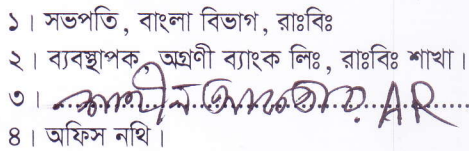 ১। সভপতি, বাংলা বিভাগ, রাঃবিঃ
২। ব্যবস্থাপক, অগ্রণী ব্যাংক লিঃ, রাঃবিঃ শাখা।
৩। AR
৪। অফিস নথি।